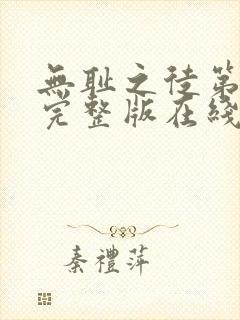 無耻之徒第
完整版在綫
秦禮萍